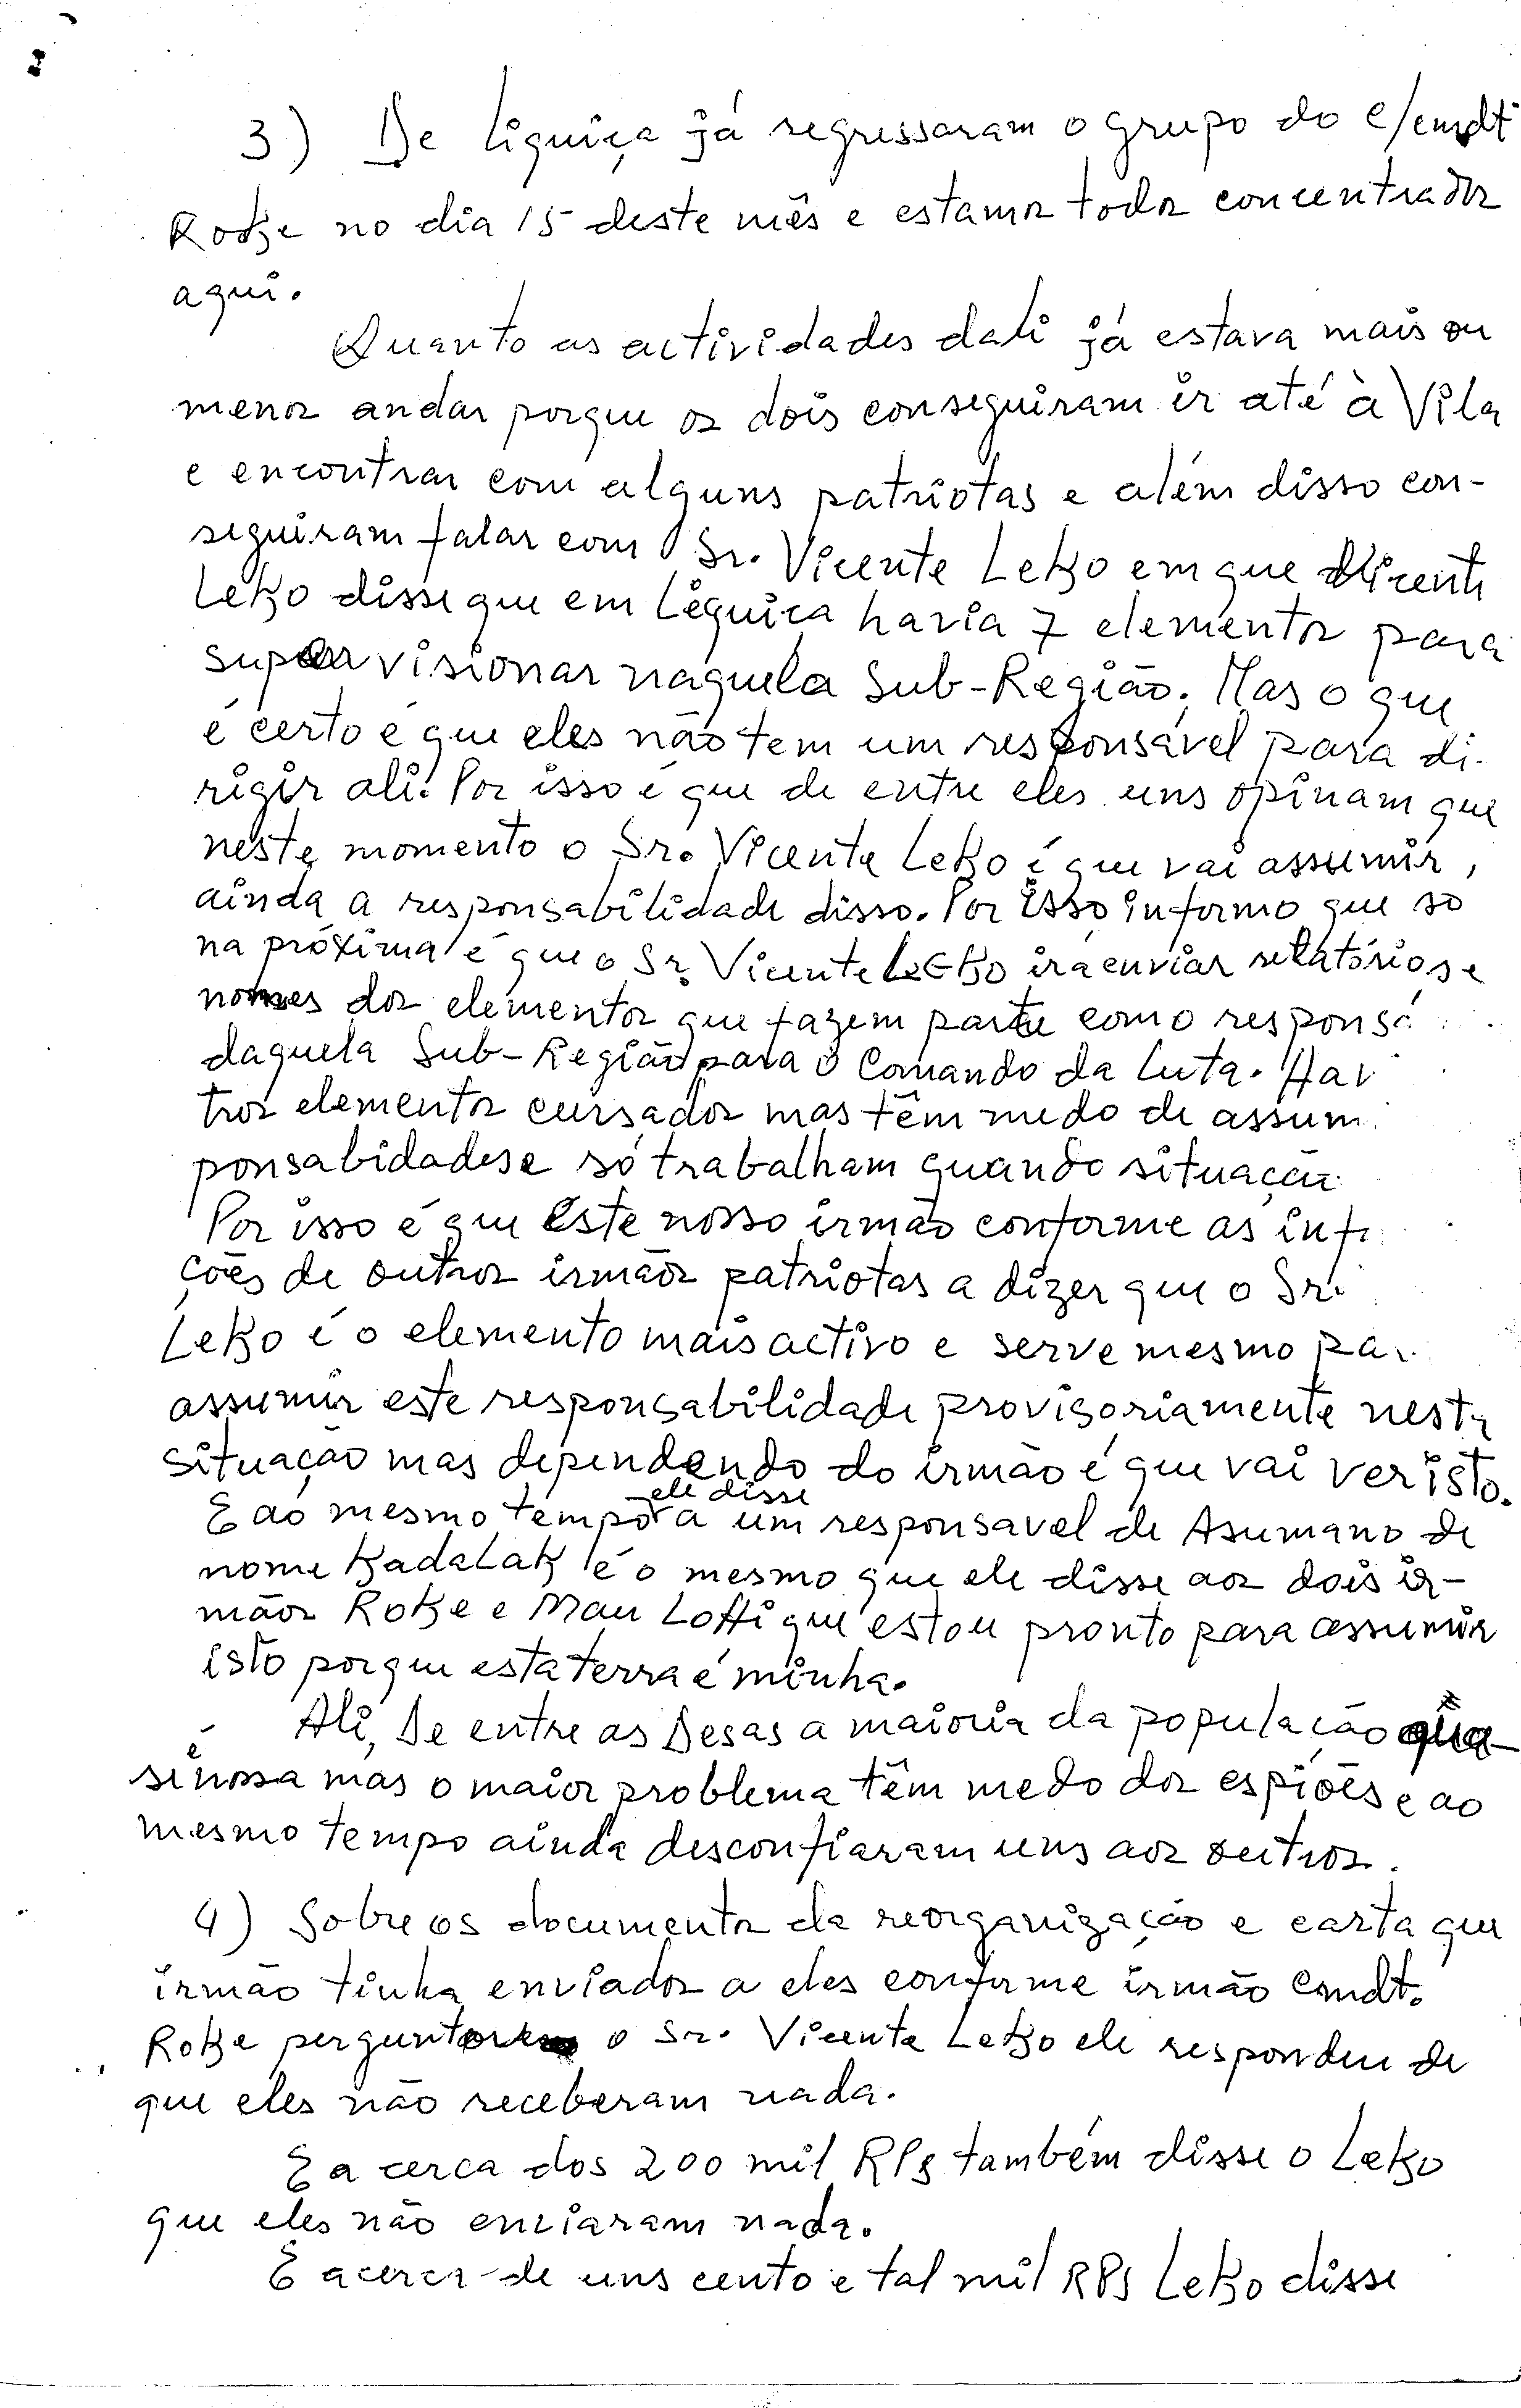 3) De liquiça já regressaram o grupo do c/cmdt
Roke no dia 15 deste mês e estamos todos concentrados
aqui.
Quanto as actividades dali já estava mais ou
menos andar porque os dois conseguiram ir até à Vila
e encontrar com alguns patriotas e além disso con-
seguiram falar com o Sr. Vicente Leko em que Vicente
Leko disse que em Liquiça havia 7 elementos para
supervisionar naquela Sub-Região. Mas o que
é certo é que eles não tem um responsável para di-
rigir ali. Por isso é que de entre eles uns opinam que
neste momento o Sr. Vicente Leko é que vai assumir,
ainda a responsabilidade disso. Por isso informo que só
na próxima é que o Sr. Vicente Leko irá enviar relatórios e
nomes dos elementos que fazem parte como responsá
daquela Sub-Região para o Comando da Luta. Hav
tros elementos cursados mas têm medo de assum
ponsabidades e só trabalham quando situação
Por isso é que este nosso irmão conforme as inf
ções de outros irmãos patriotas a dizer que o Sr.
Leko é o elemento mais activo e serve mesmo pa
assumir este responsabilidade provisoriamente nesta
situação mas dependendo do irmão é que vai ver isto.
E ao mesmo tempo ele disse a um responsavel de Asumano de
nome Kadalak é o mesmo que ele disse aos dois ir-
mãos Roke e Mau Loffi que estou pronto para assumir
isto porque esta terra é minha.
Ali, De entre as Desas a maioria da população qua-
se é nossa mas o maior problema têm medo dos espiões e ao
mesmo tempo ainda desconfiaram uns aos outros.
4) Sobre os documentos da reorganização e carta que
irmão tinha enviados a eles conforme irmão Cmdt.
Roke perguntou o Sr. Vicente Leko ele respondeu de
que eles não receberam nada.
E a cerca dos 200 mil RPs também disse o Leko
que eles não enviaram nada.
E acerca de uns cento e tal mil RPs Leko disse